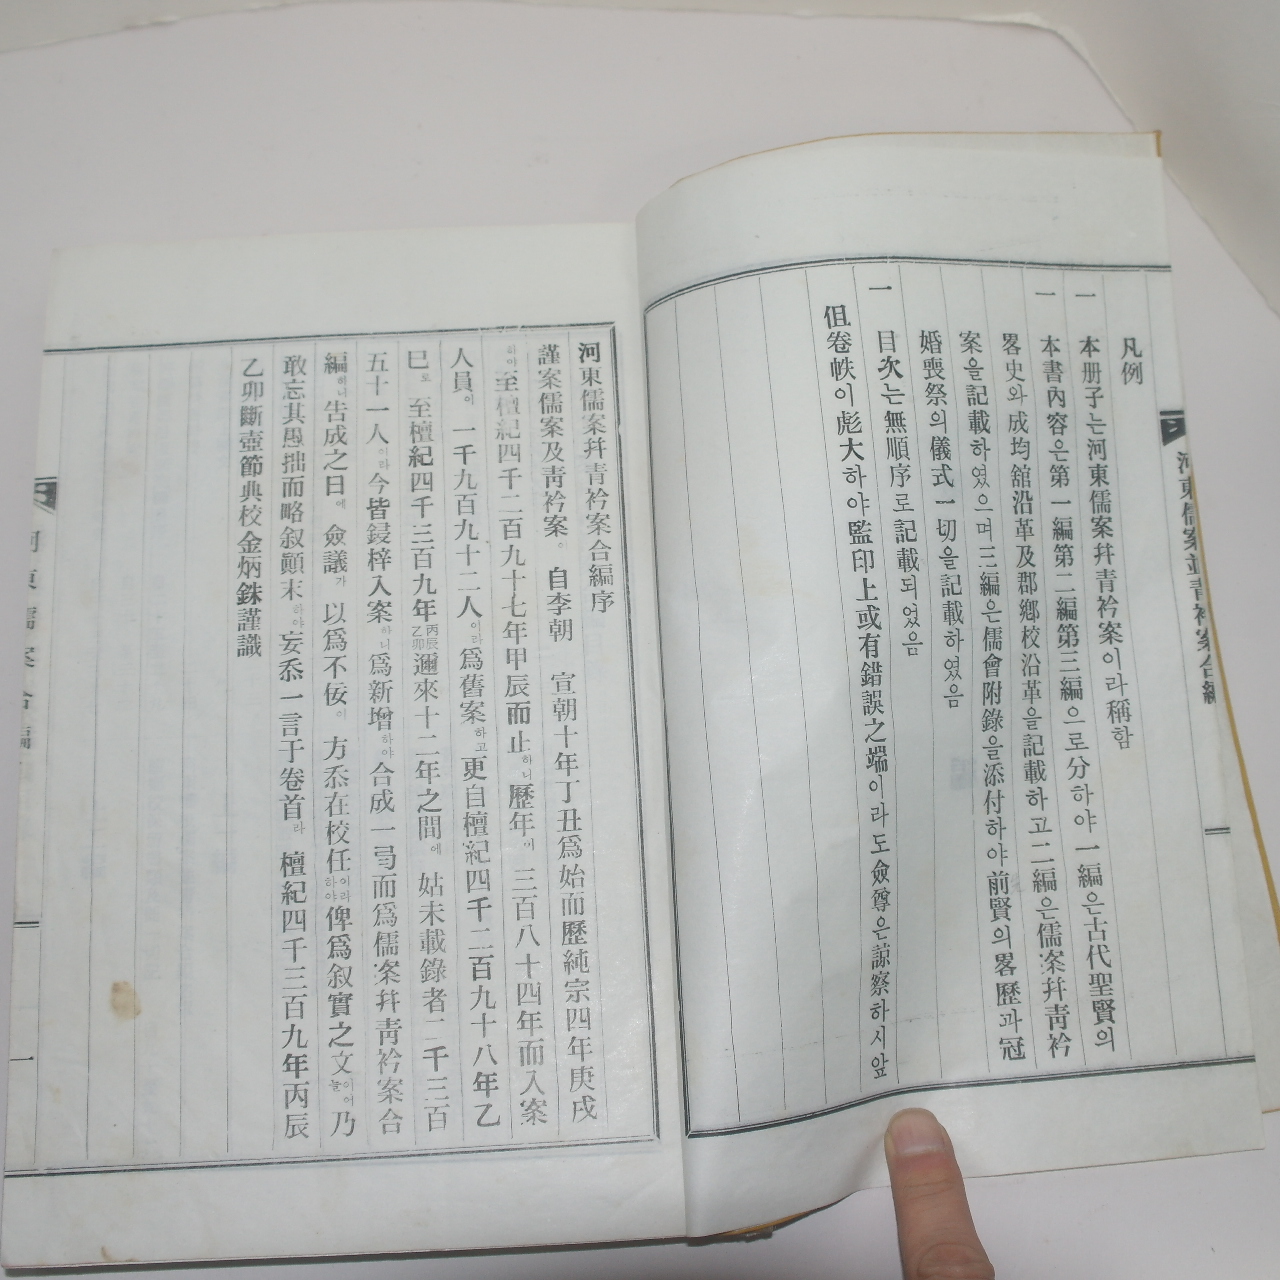 河東儒案並青衿案合編
凡例
一 本册子는河東儒案幷青衿案이라稱함
一 本書內容은第一編第二編第三編으로分하야一編은古代聖賢의
畧史와成均舘沿革及郡鄉校沿革을記載하고二編은儒案幷靑衿
案을記載하였으며三編은儒會附錄을添付하야前賢의畧歷과冠
婚喪祭의儀式一切을記載하였음
一 目次는無順序로記載되었음
但卷帙이彪大하야監印上或有錯誤之端이라도僉尊은諒察하시압
河東儒案幷青衿案合編序
謹案儒案及靑衿案。自李朝 宣朝十年丁丑爲始而歷純宗四年庚戌
하야至檀紀四千二百九十七年甲辰而止하니歷年이 三百八十四年而入案
人員이 一千九百九十二人이라爲舊案하고更自檀紀四千二百九十八年乙
巳로 至檀紀四千三百九年丙辰乙卯邇來十二年之間에 姑未載錄者二千三百
五十一人이라今皆鋟梓入案하니爲新增하야合成一号而爲儒案幷靑衿案合
編하니告成之日에 僉議가 以爲不佞이 方忝在校任이라하야俾爲叙實之文이어늘乃
敢忘其愚拙而略叙顚末하야妄忝一言于卷首라 檀紀四千三百九年丙辰
乙卯斷壺節典校金炳銖謹識
河東儒案合編
一